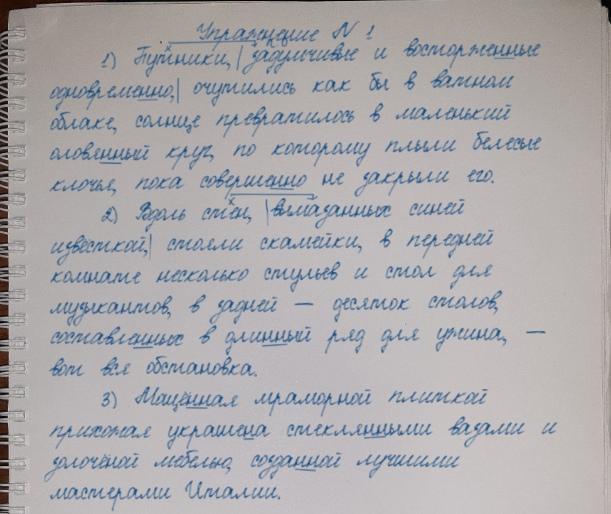 Упражнение № 1
1) Путники, | задумчивые и восторженные
одновременно, | очутились как бы в ватном
облаке, солнце превратилось в маленький
оловянный круг, по которому плыли белесые
клочья, пока совершенно не закрыли его.
2) Вдоль стен, | вымазанных синей
известкой, | стояли скамейки, в передней
комнате несколько стульев и стол для
музыкантов, в задней — десяток столов,
составленных в длинный ряд для ужина, —
вот вся обстановка.
3) Мощённая мраморной плиткой
прихожая украшена стеклянными вазами и
золочёной мебелью, созданной лучшими
мастерами Италии.